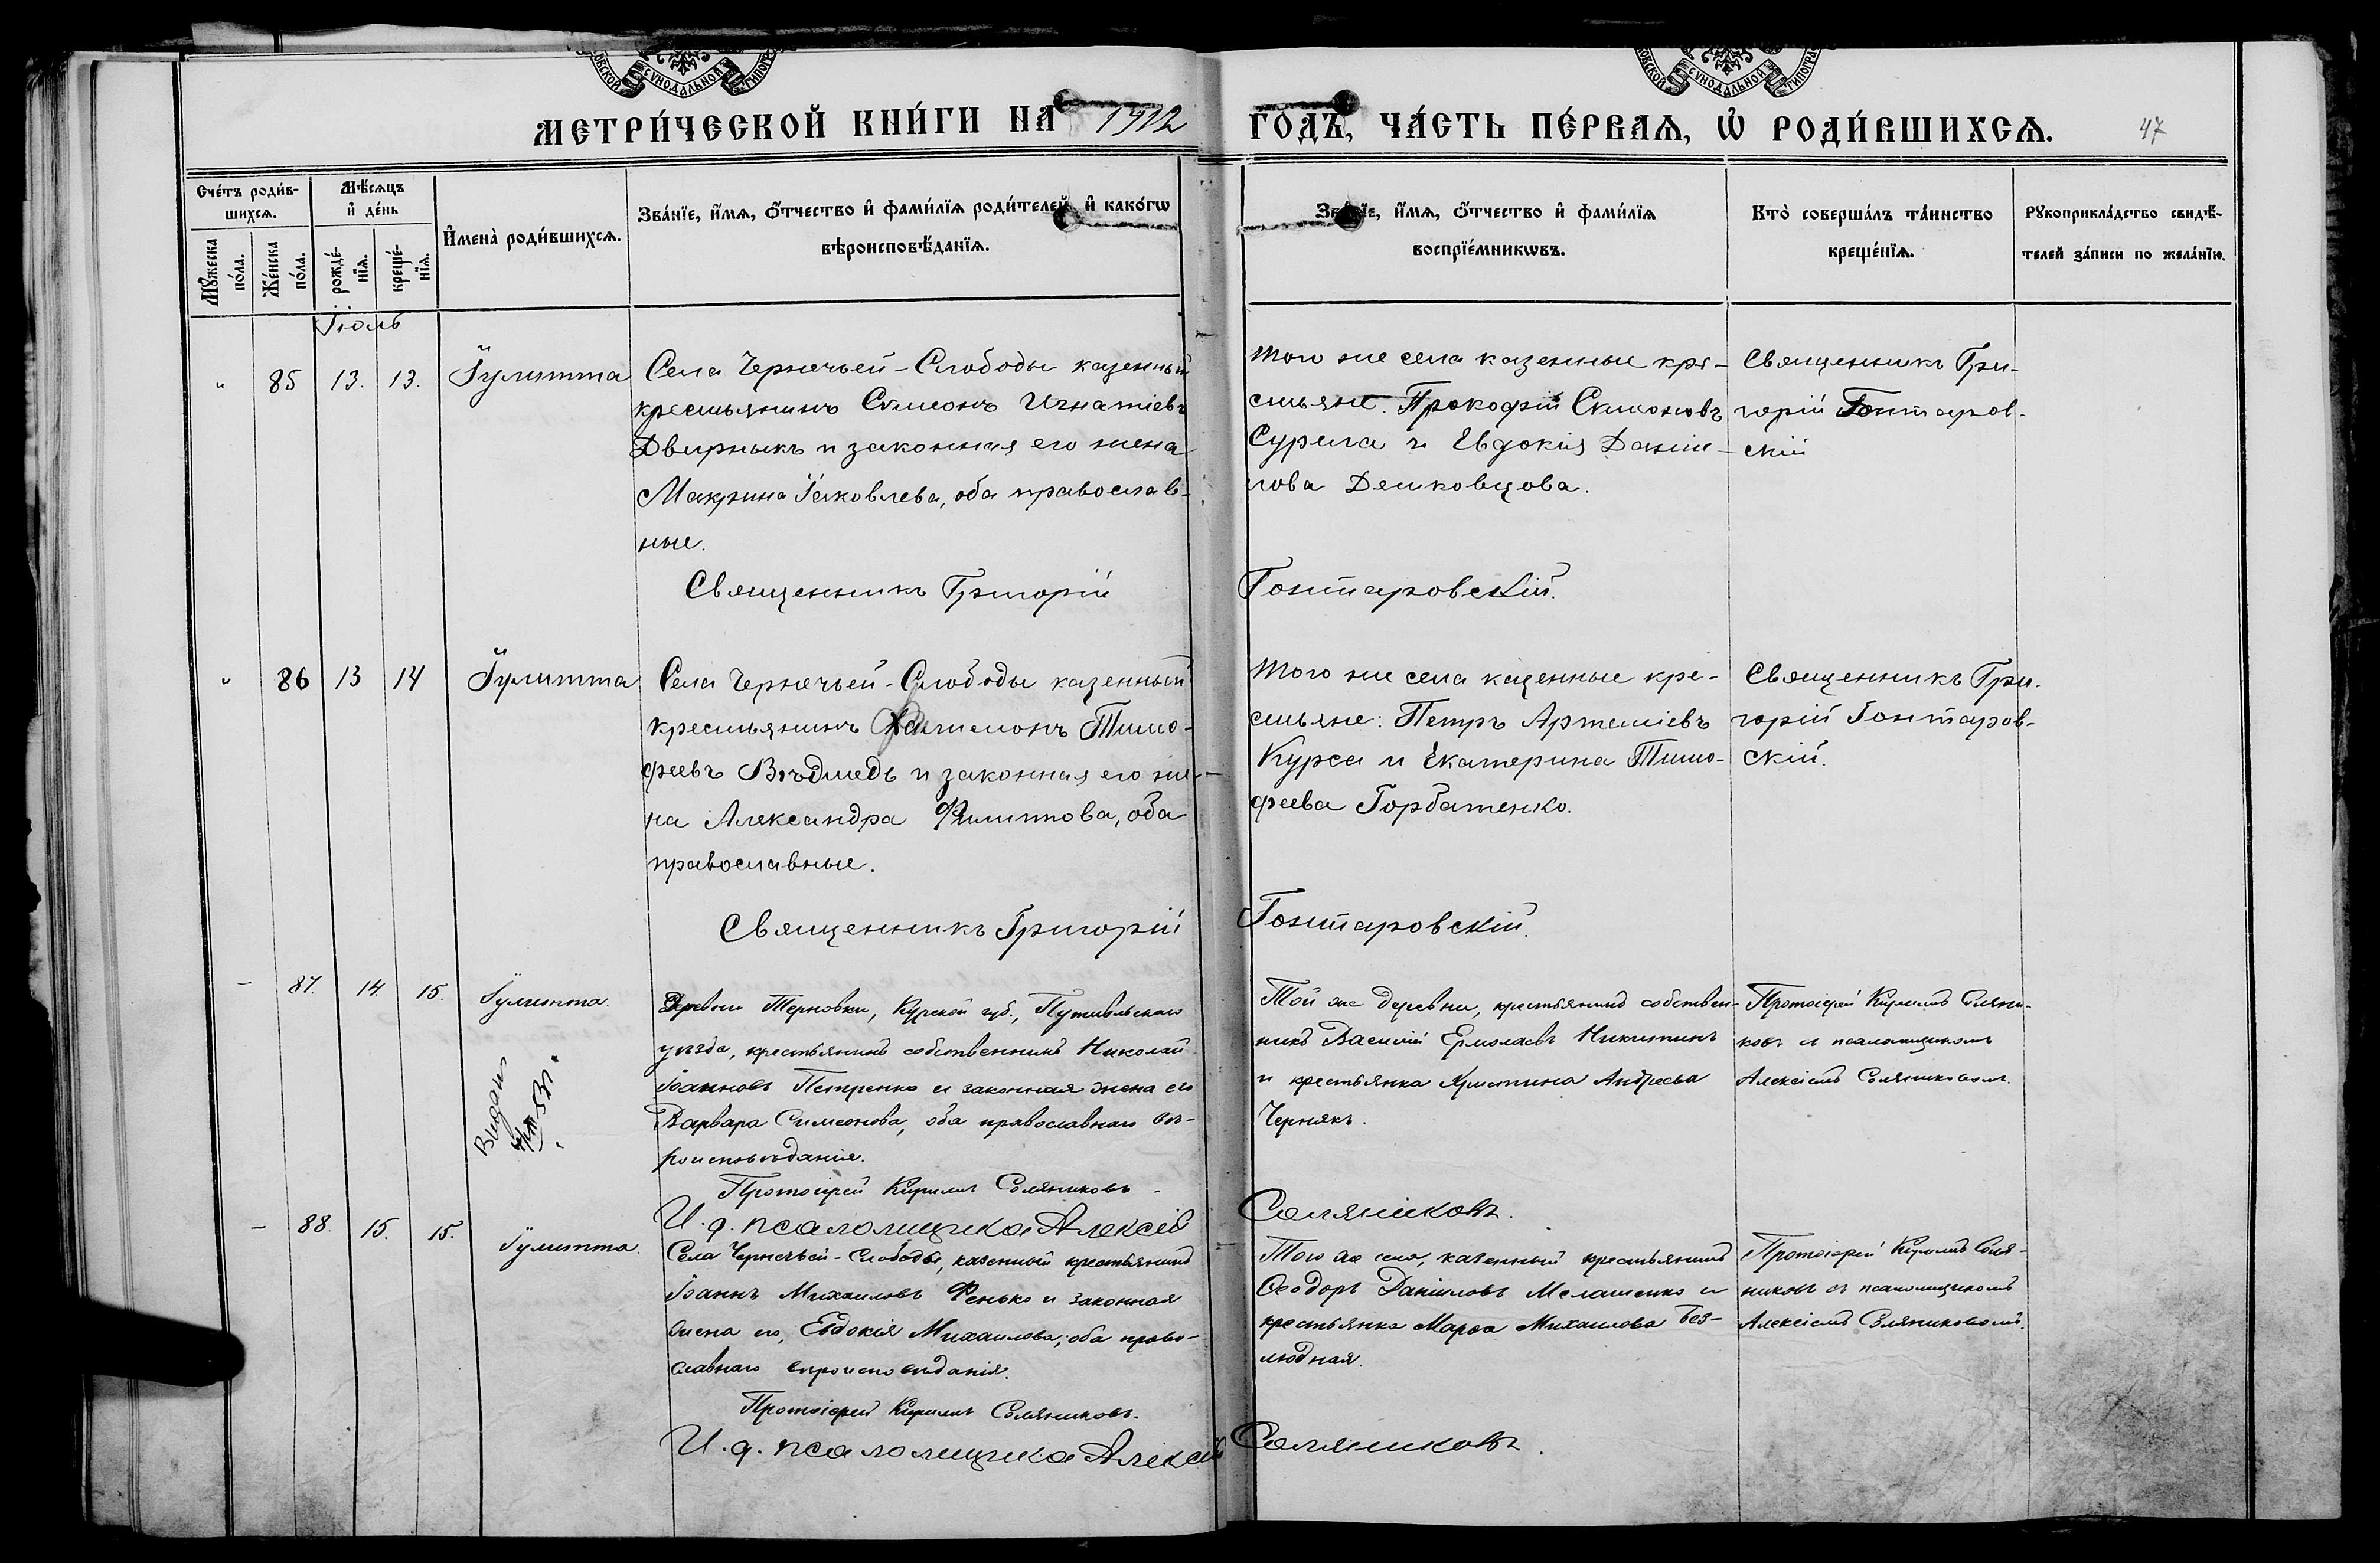 СѴНОДАЛЬНОЙ
СѴНОДАЛЬНОЙ
МЕТРИ́ЧЕСКОЙ КНИ́ГИ НА 1912 ГОДЪ, ЧА́СТЬ ПЕ́РВАѦ, Ѡ҆ РОДИ́ВШИХСѦ. 47
Сче́тъ роди́в-
шихсѧ.
Мѣ́сѧцъ
и҆ де́нь
И҆мена̀ роди́вшихсѧ.
Зва́нїе, и҆́мѧ, ѻ҆́тчество и҆ фами́лїѧ роди́телей, и҆ како́гѡ
вѣроисповѣ́данїѧ.
Зва́нїе, и҆́мѧ, ѻ҆́тчество и҆ фами́лїѧ
воспрїе́мникѡвъ.
Кто̀ соверша́лъ та́инство
креще́нїѧ.
Рꙋкоприкла́дство свидѣ́-
телей за́писи по жела́нїю.
Мꙋ́жеска
по́ла.
Же́нска
по́ла.
рожде́-
нїѧ.
креще́-
нїѧ.
Іюль
" 85 13. 13. Іулитта
Села Чернечьей-Слободы казенный
крестьянинъ Симеонъ Игнатіевъ
Двирныкъ и законная его жена
Макрина Іаковлева, оба православ-
ные.
Того же села казенные кре-
стьяне: Прокофій Симоновъ
Сурела и Евдокія Дании-
лова Дешковцова.
Священникъ Гри-
горій Гонтаров-
скій
Священникъ Григорій Гонтаровскій.
" 86 13 14 Іулитта
Села Чернечьей-Слободы казенный
крестьянинъ Филимонъ Тимо-
феевъ Вѣдмедь и законная его же-
на Александра Филиппова, оба
православные.
Того же села казенные кре-
стьяне: Петръ Артеміевъ
Курса и Екатерина Тимо-
феева Горбатенко.
Священникъ Гри-
горій Гонтаров-
скій.
Священникъ Григорій Гонтаровскій.
- 87. 14. 15. Іулитта.
Выдано
Деревни Терновки, Курской губ., Путивльскаго
уѣзда, крестьянинъ собственникъ Николай
Іоанновъ Петренко и законная жена его
Варвара Симеонова, оба православнаго вѣ-
роисповѣданія.
Той же деревни, крестьянинъ собствен-
никъ Василій Ермолаевъ Никитинъ
и крестьянка Христина Андреева
Чернякъ.
Протоіерей Кириллъ Соляни-
ковъ съ псаломщикомъ
Алексіемъ Соляниковымъ.
Протоіерей Кириллъ Соляниковъ.
И. д. псаломщика Алексій Соляниковъ.
- 88. 15. 15. Іулитта.
Села Чернечьей-Слободы, казенный крестьянинъ
Іоаннъ Михаиловъ Фенько и законная
жена его, Евдокія Михаилова; оба право-
славнаго вѣроисповѣданія.
Того же села, казенный крестьянинъ
Ѳеодоръ Даніиловъ Мелашенко и
крестьянка Марѳа Михаилова Без-
людная.
Протоіерей Кириллъ Соля-
никовъ съ псаломщикомъ
Алексіемъ Соляниковымъ.
Протоіерей Кириллъ Соляниковъ.
И. д. псаломщика Алексій Соляниковъ.